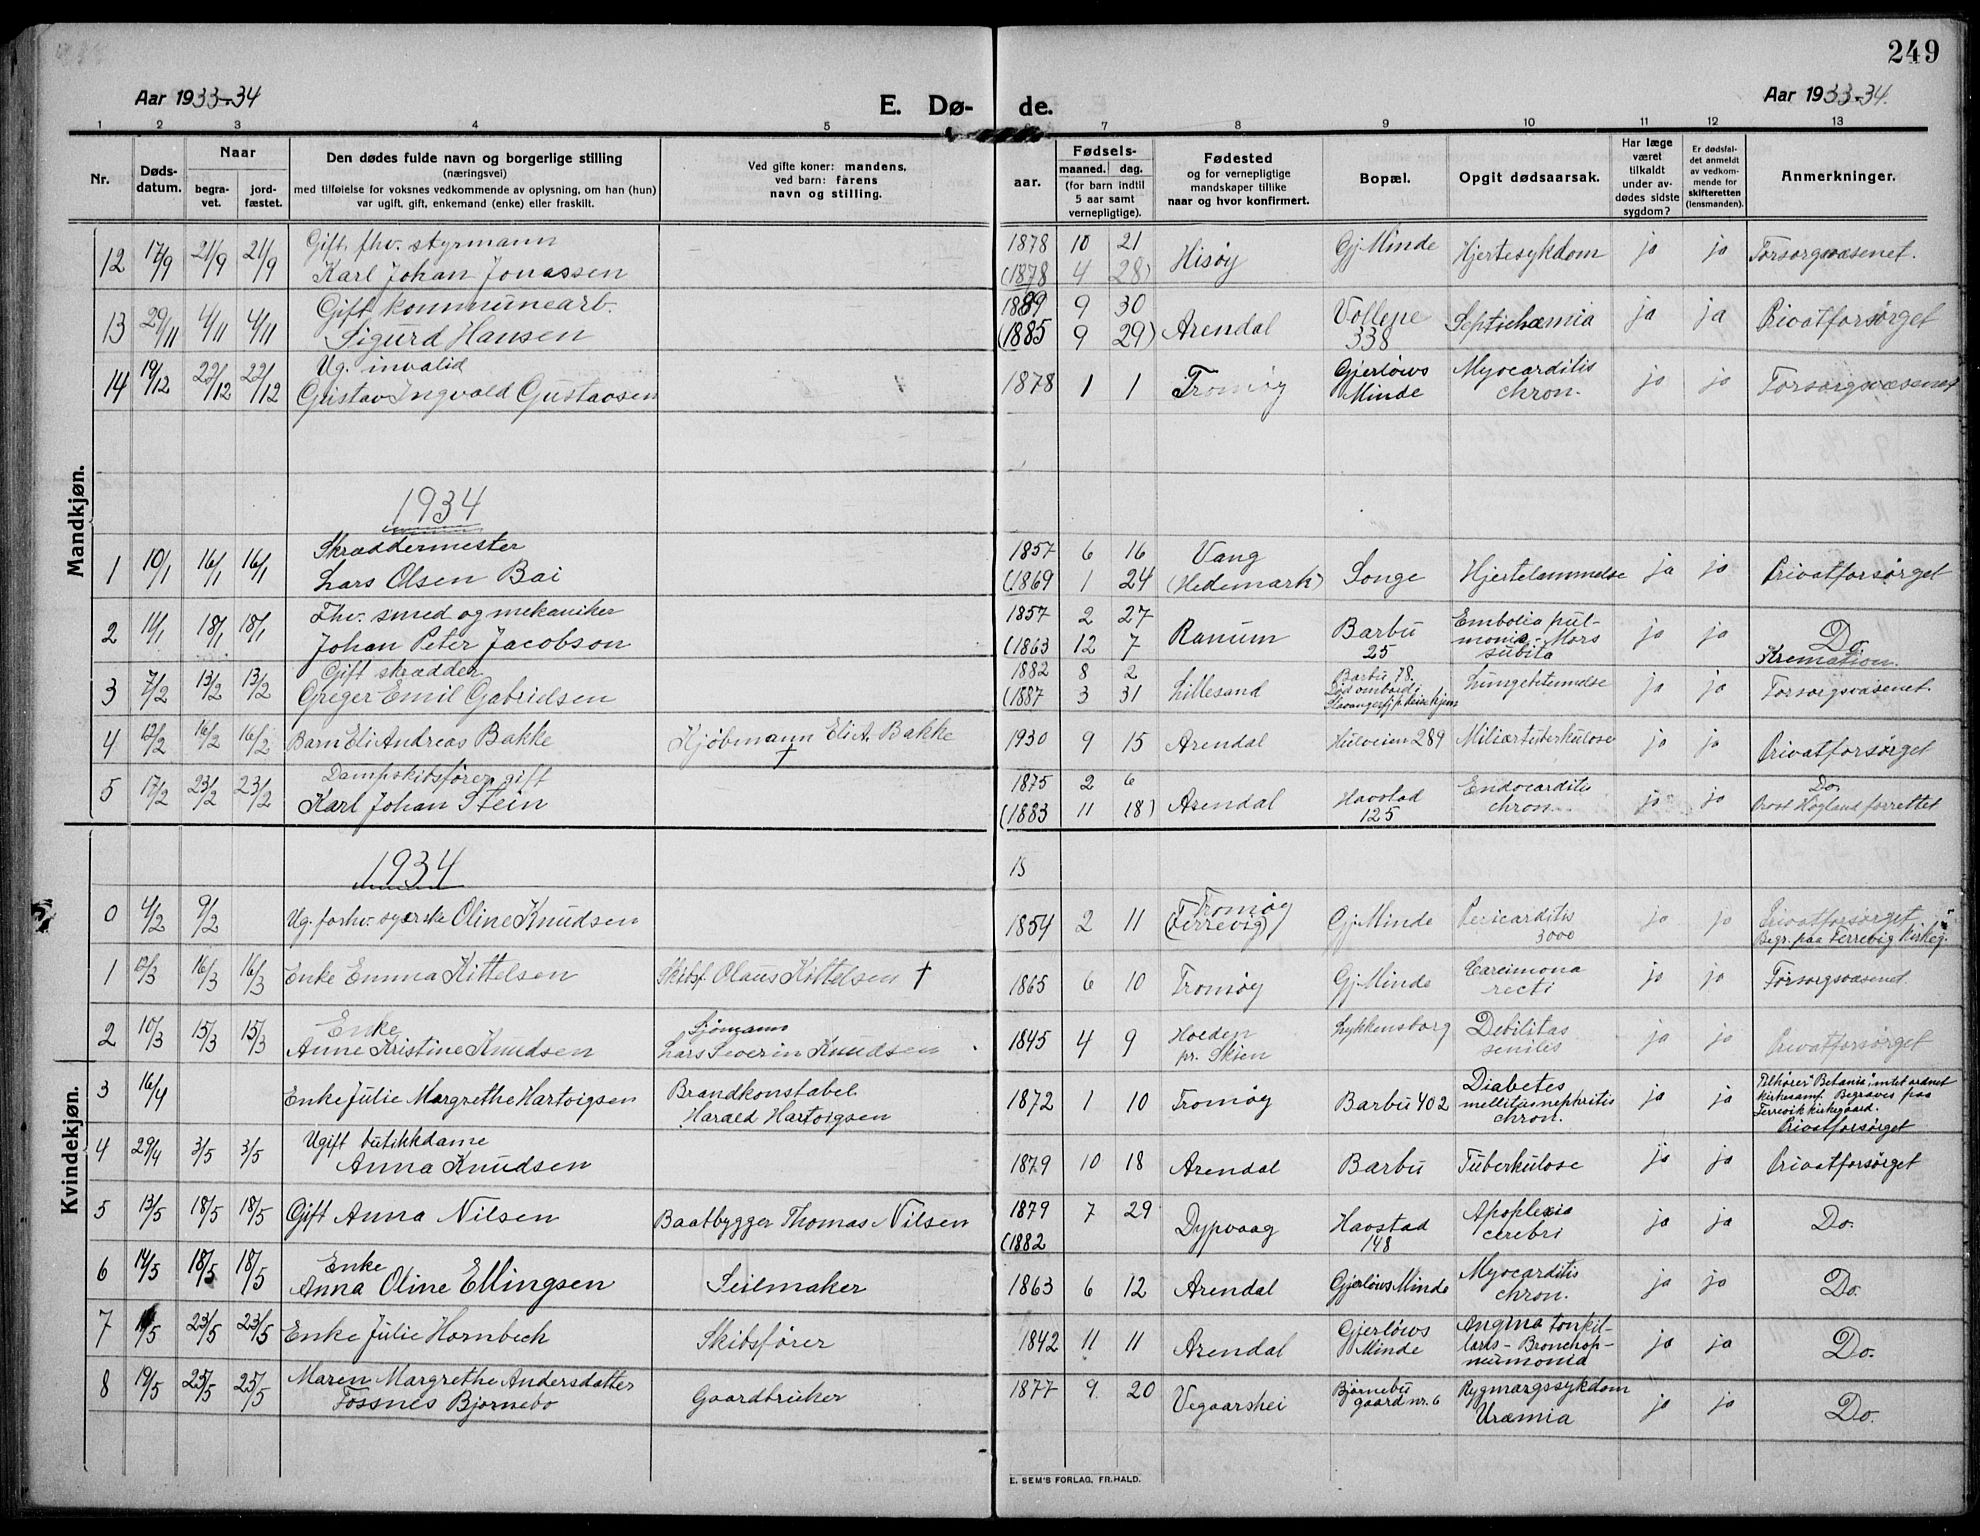 249
Aar 1933-34
E. Dø-
de.
Aar 1933-34.
1 2 3 4 5 7 8 9 10 11 12 13
Nr.
Døds-
datum.
Naar
begra-
vet.
jord-
fæstet.
Den dødes fulde navn og borgerlige stilling
(næringsvei)
med tilføielse for voksnes vedkommende av oplysning, om han (hun)
var ugift, gift, enkemand (enke) eller fraskilt.
Ved gifte koner: mandens,
ved barn: farens
navn og stilling.
Fødsels-
aar.
maaned. dag.
(for barn indtil
5 aar samt
vernepligtige).
Fødested
og for vernepligtige
mandskaper tillike
naar og hvor konfirmert.
Bopæl.
Opgit dødsaarsak.
Har læge
været
tilkaldt
under av-
dødes sidste
sygdom?
Er dødsfal-
det anmeldt
av vedkom-
mende for
skifteretten
(lensmanden).
Anmerkninger.
Mandkjøn.
Gift, fhv. styrmann
12 17/9 21/9 21/9 Karl Johan Jonassen
1878 10 21 Hisøy Gj. Minde Hjertesykdom ja ja Forsorgsvæsenet.
(1878 4 28)
Gift kommunearb.
13 29/11 4/11 4/11 Sigurd Hansen
1889 9 30 Arendal Vollene Septichæmia ja ja Privatforsørget
(1885 9 29) 338
Ug. invalid
14 19/12 22/12 22/12 Gustav Ingvald Gustavsen
1878 1 1 Tromøy Gjerløws Myocarditis ja ja Forsorgsvæsenet
Minde chron.
1934
Skræddermester
1 10/1 16/1 16/1 Lars Olsen Bai
1857 6 16 Vang
(1869 1 24 (Hedemark) Songe Hjertelammelse ja ja Privatforsørget
Fhv. smed og mekaniker
2 11/1 18/1 18/1 Johan Peter Jacobson
1857 2 27 Ranum Barbu Embolia pul- ja ja Do.
(1863 12 7 25 monia - Mors
subita Kremation.
Gift skrædder
3 7/2 13/2 13/2 Greger Emil Gabrielsen
1882 8 2 Lillesand Barbu 78. Lungebetennelse ja ja Forsorgsvæsenet.
(1887 3 31 Død ombord i
4 12/2 16/2 16/2 Barn Eli Andreas Bakke Kjøbmann Eli A. Bakke
†
1930 9 15 Arendal Hulveien 289 Miliærtuberkulose ja ja Privatforsørget
Dampskibsfører, gift
5 17/2 23/2 23/2 Karl Johan Stein
1875 2 6 Arendal Havstad Endocarditis ja ja Do.
(1883 11 18) 125 chron. Prost Høgland forrettet
Kvindekjøn.
1934
15
0 4/2 9/2 Ug. forhv. syerske Oline Knudsen
1854 2 11 Tromøy Gj. Minde Pericarditis ja ja Privatforsørget
(Færrevig) 3000 Begr. paa Færrevig kirkeg.
1 12/3 16/3 16/3 Enke Emma Kittelsen Skibsf. Olaus Kittelsen †
1865 6 10 Tromøy Gj. Minde Carcimona ja ja Forsorgsvæsenet.
recti
Enke Sjømann
2 10/3 15/3 15/3 Anne Kristine Knudsen Lars Severin Knudsen
1845 4 9 Holden Lykkensborg Debilitas ja ja Privatforsørget
pr. Skien senilis
3 16/4 Enke Julie Margrethe Hartvigsen Brandkonstabel
Harald Hartvigsen
1872 1 10 Tromøy Barbu 402 Diabetes ja ja Tilhører "Betania", intet ordnet
mellitus nephritis kirkesamf. Begraves paa
chron. Færrevik kirkegaard.
Privatforsørget
Ugift butikkdame
4 29/4 3/5 3/5 Anna Knudsen
1879 10 18 Arendal Barbu Tuberkulose ja ja Privatforsørget
5 13/5 18/5 18/5 Gift Anna Nilsen Baatbygger Thomas Nilsen
1879 7 29 Dypvaag Havstad Apoplexia ja ja Do.
(1882 148 cerebri
Enke
6 14/5 18/5 18/5 Anna Oline Ellingsen Seilmaker
1863 6 12 Arendal Gjerløws Minde Myocarditis ja ja Do.
chron.
7 /5 23/5 23/5 Enke Julie Hornbech Skibsfører
1842 11 11 Arendal Gjerløws Angina tonsil- ja ja Do.
Minde laris - Bronchop-
neumonia
8 19/5 25/5 25/5 Maren Margrethe Andersdatter Gaardbruker
Fossnes Bjørnebo
1877 9 20 Vegaarshei Bjørnebu Rygmargssykdom ja ja Do.
gaard nr. 6 Uræmia
E. SEM'S FORLAG, FR.HALD.